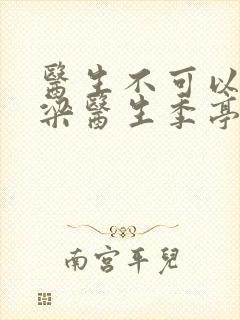 醫生不可以
梁醫生季亭
南宮平兒